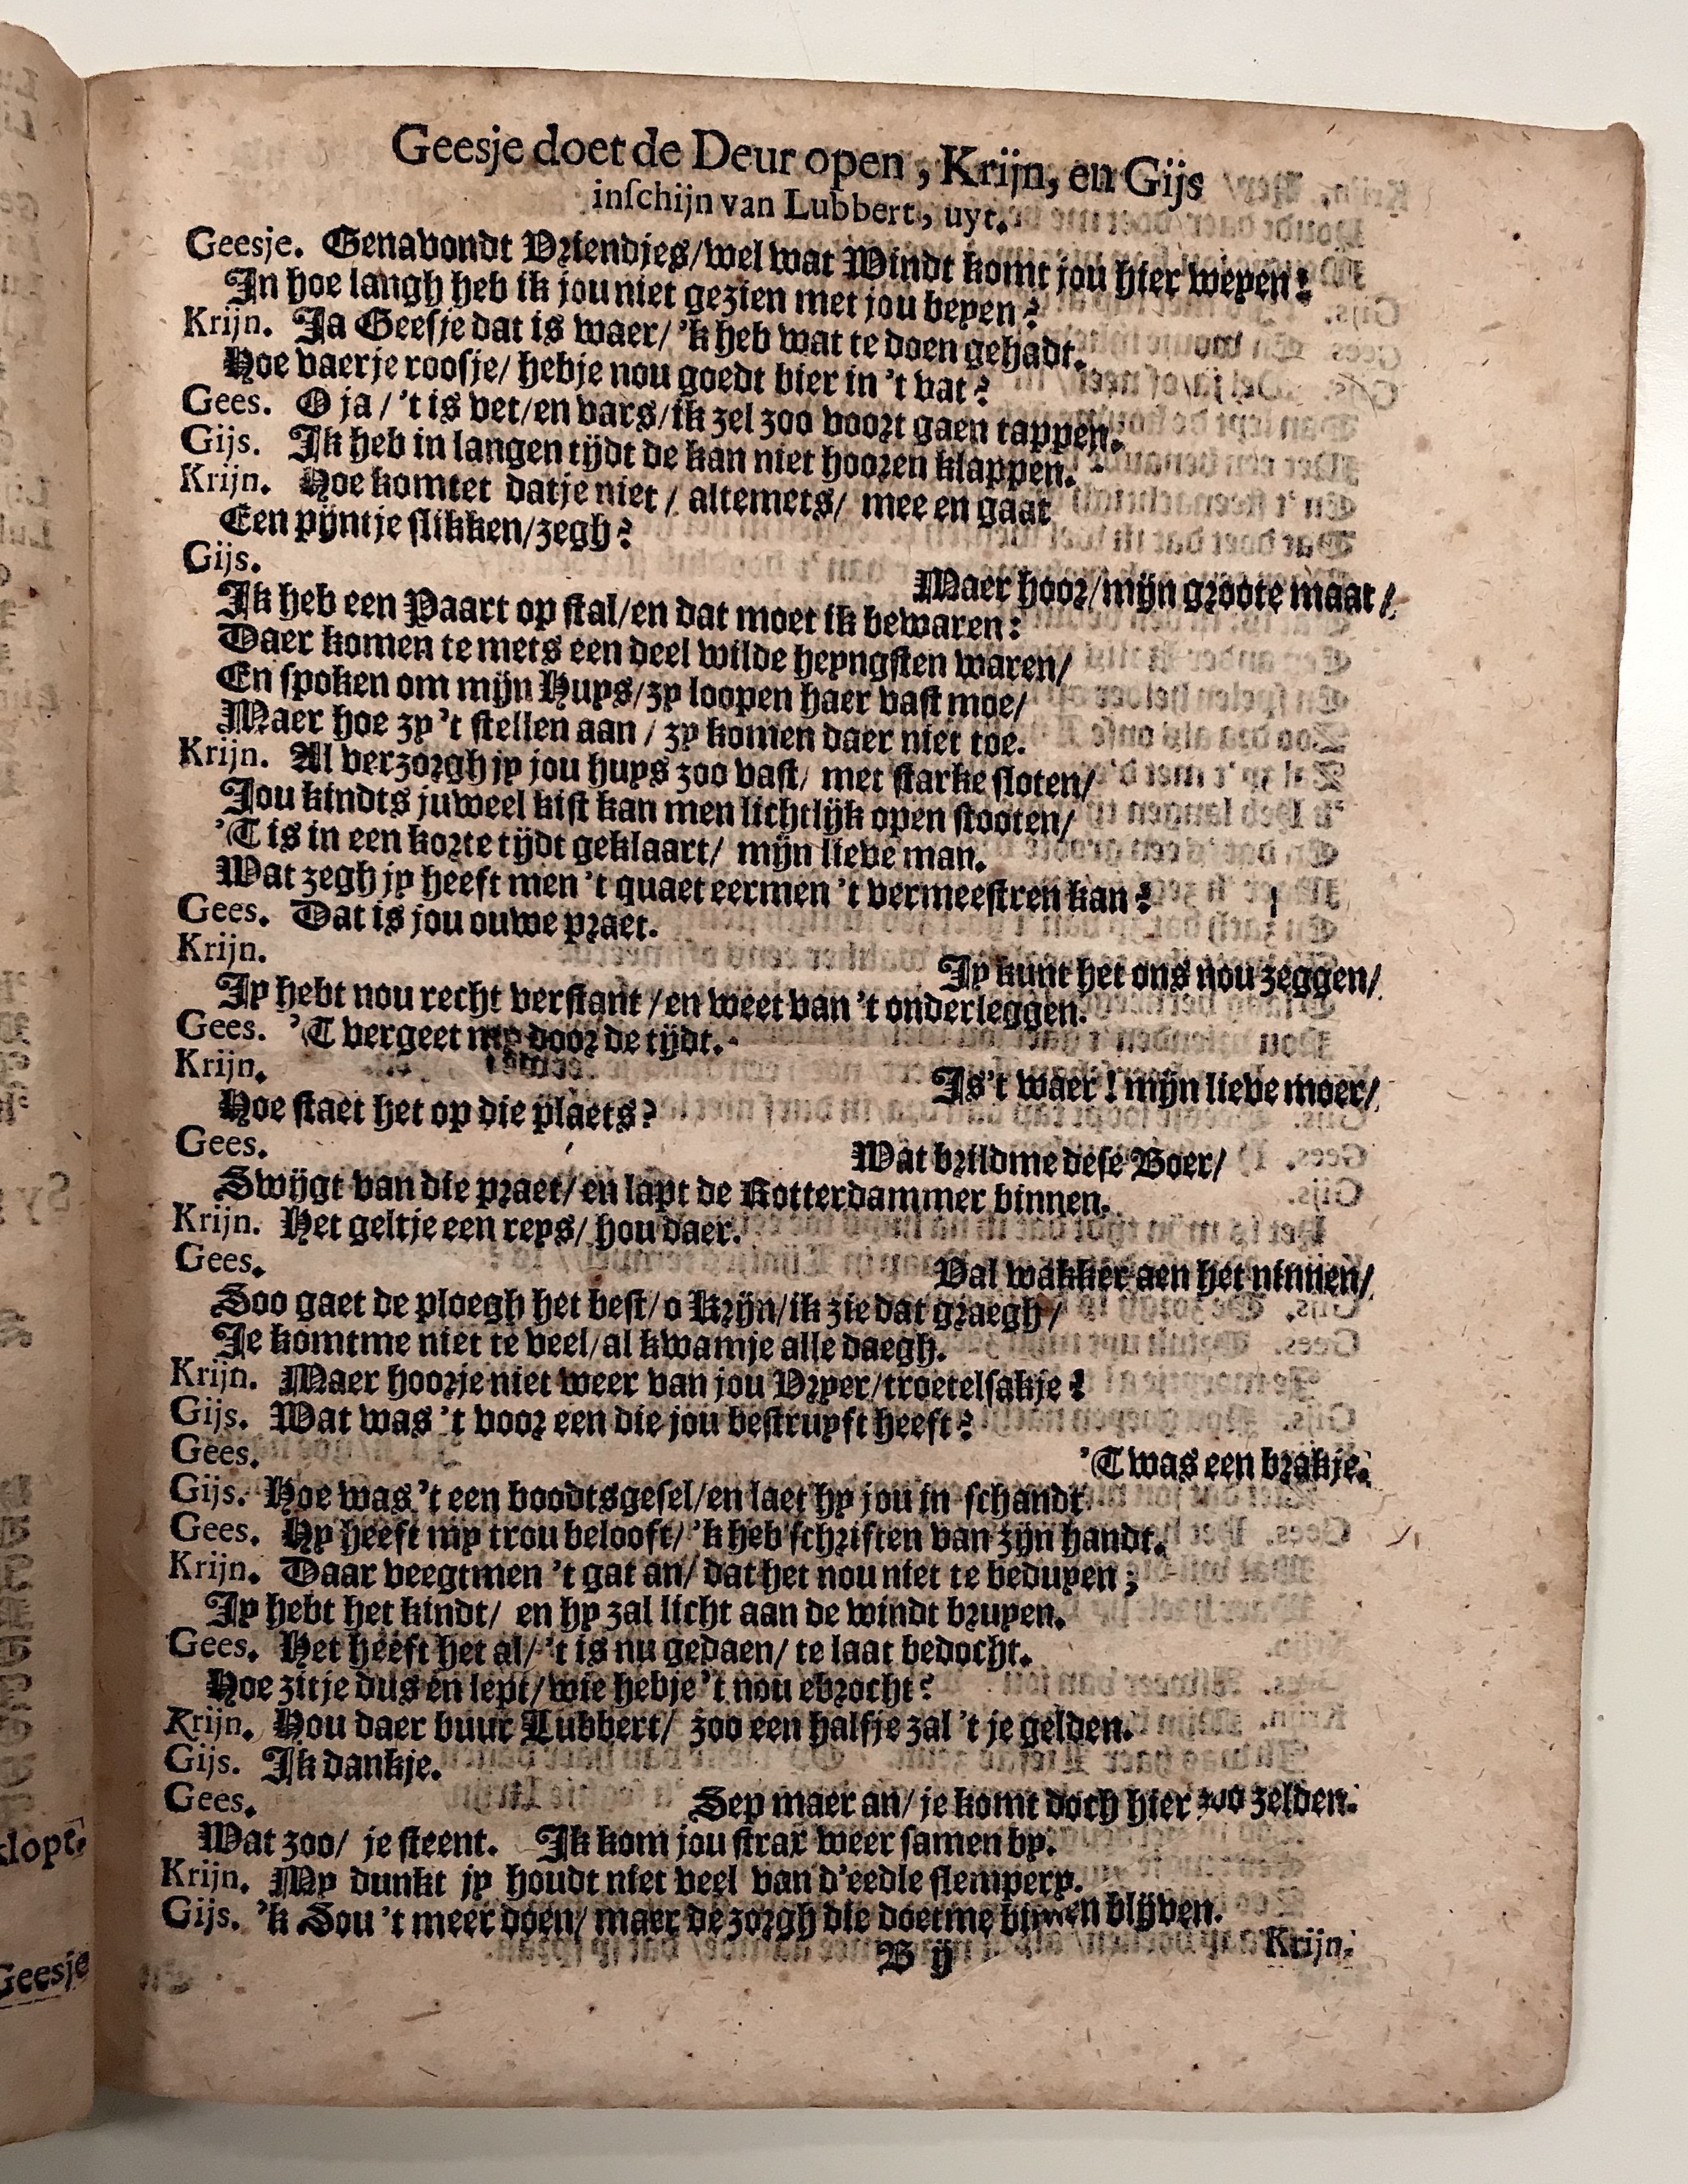 Geesje doet de Deur open, Krijn, en Gijs
inſchijn van Lubbert, uyt.
Geesje. Genavondt Vriendjes/wel wat Windt komt jou hier weyen!
In hoe langh heb ik jou niet gezien met jou beyen?
Krijn. Ja Geeſje dat is waer/ 'k heb wat te doen gehadt.
Hoe vaerje rooſje/ hebje nou goedt bier in 't vat?
Gees. O ja/ 't is vet/en vars/ik zel zoo voort gaen tappen.
Gijs. Ik heb in langen tijdt de kan niet hooren klappen.
Krijn. Hoe komtet datje niet/ altemets/ mee en gaat
Een pijntje ſlikken/zegh?
Gijs.
Maer hoor/mijn groote maat/
Ik heb een Paart op ſtal/en dat moet ik bewaren:
Daer komen te mets een deel wilde heyngſten waren/
En ſpoken om mijn Huys/zy loopen haer vaſt moe/
Maer hoe zy 't ſtellen aan/ zy komen daer niet toe.
Krijn. Al verzorgh jy jou huys zoo vaſt/ met ſtarke ſloten/
Jou kindts juweel kiſt kan men lichtlijk open ſtooten/
'T is in een korte tijdt geklaart/ mijn lieve man.
Wat zegh jy heeft men 't quaet eermen 't vermeeſtren kan?
Gees. Dat is jou ouwe praet.
Krijn.
Jy kunt het ons nou zeggen/
Jy hebt nou recht verſtant/en weet van 't onderleggen.
Gees. 'T vergeet my door de tijdt.
Krijn.
Is't waer! mijn lieve moer/
Hoe ſtaet het op die plaets?
Gees.
Wat brildme deſe Boer/
Swijgt van die praet/ en lapt de Rotterdammer binnen.
Krijn. Het geltje een reys/ hou daer.
Gees.
Val wakker aen het ninnen/
Soo gaet de ploegh het beſt/o Krijn/ik zie dat graegh/
Je komtme niet te veel/al kwamje alle daegh.
Krijn. Maer hoorje niet weer van jou Vryer/troetelſakje?
Gijs. Wat was 't voor een die jou beſtruyft heeft?
Gees.
'T was een brakje.
Gijs. Hoe was 't een boodtsgeſel/en laet hy jou in ſchandt
Gees. Hy heeft my trou belooft/ 'k heb ſchriften van zijn handt.
Krijn. Daar veegtmen 't gat an/ dat het nou niet te beduyen;
Jy hebt het kindt/ en hy zal licht aan de windt bruyen.
Gees. Het heeft het al/ 't is nu gedaen/ te laat bedocht.
Hoe zitje dus en lept/wie hebje 't nou ebrocht?
Krijn. Hou daer buur Lubbert/ zoo een halfje zal 't je gelden.
Gijs. Ik dankje.
Gees.
Sep maer an/ je komt doch hier zoo zelden.
Wat zoo/ je ſteent. Ik kom jou ſtrax weer ſamen by.
Krijn. My dunkt jy houdt niet veel van d'eedle ſlempery.
Gijs. 'k Sou 't meer doen/ maer de zorgh die doetme binnen blijven.
B ij
Krijn.
klopt.
Geesje